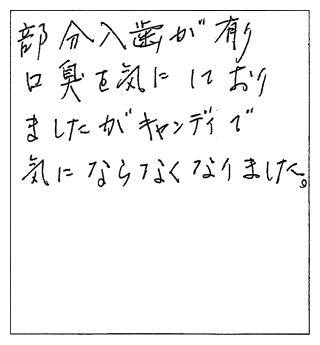 部分入歯が有り
口臭を気にしており
ましたがキャンディで
気にならなくなりました。